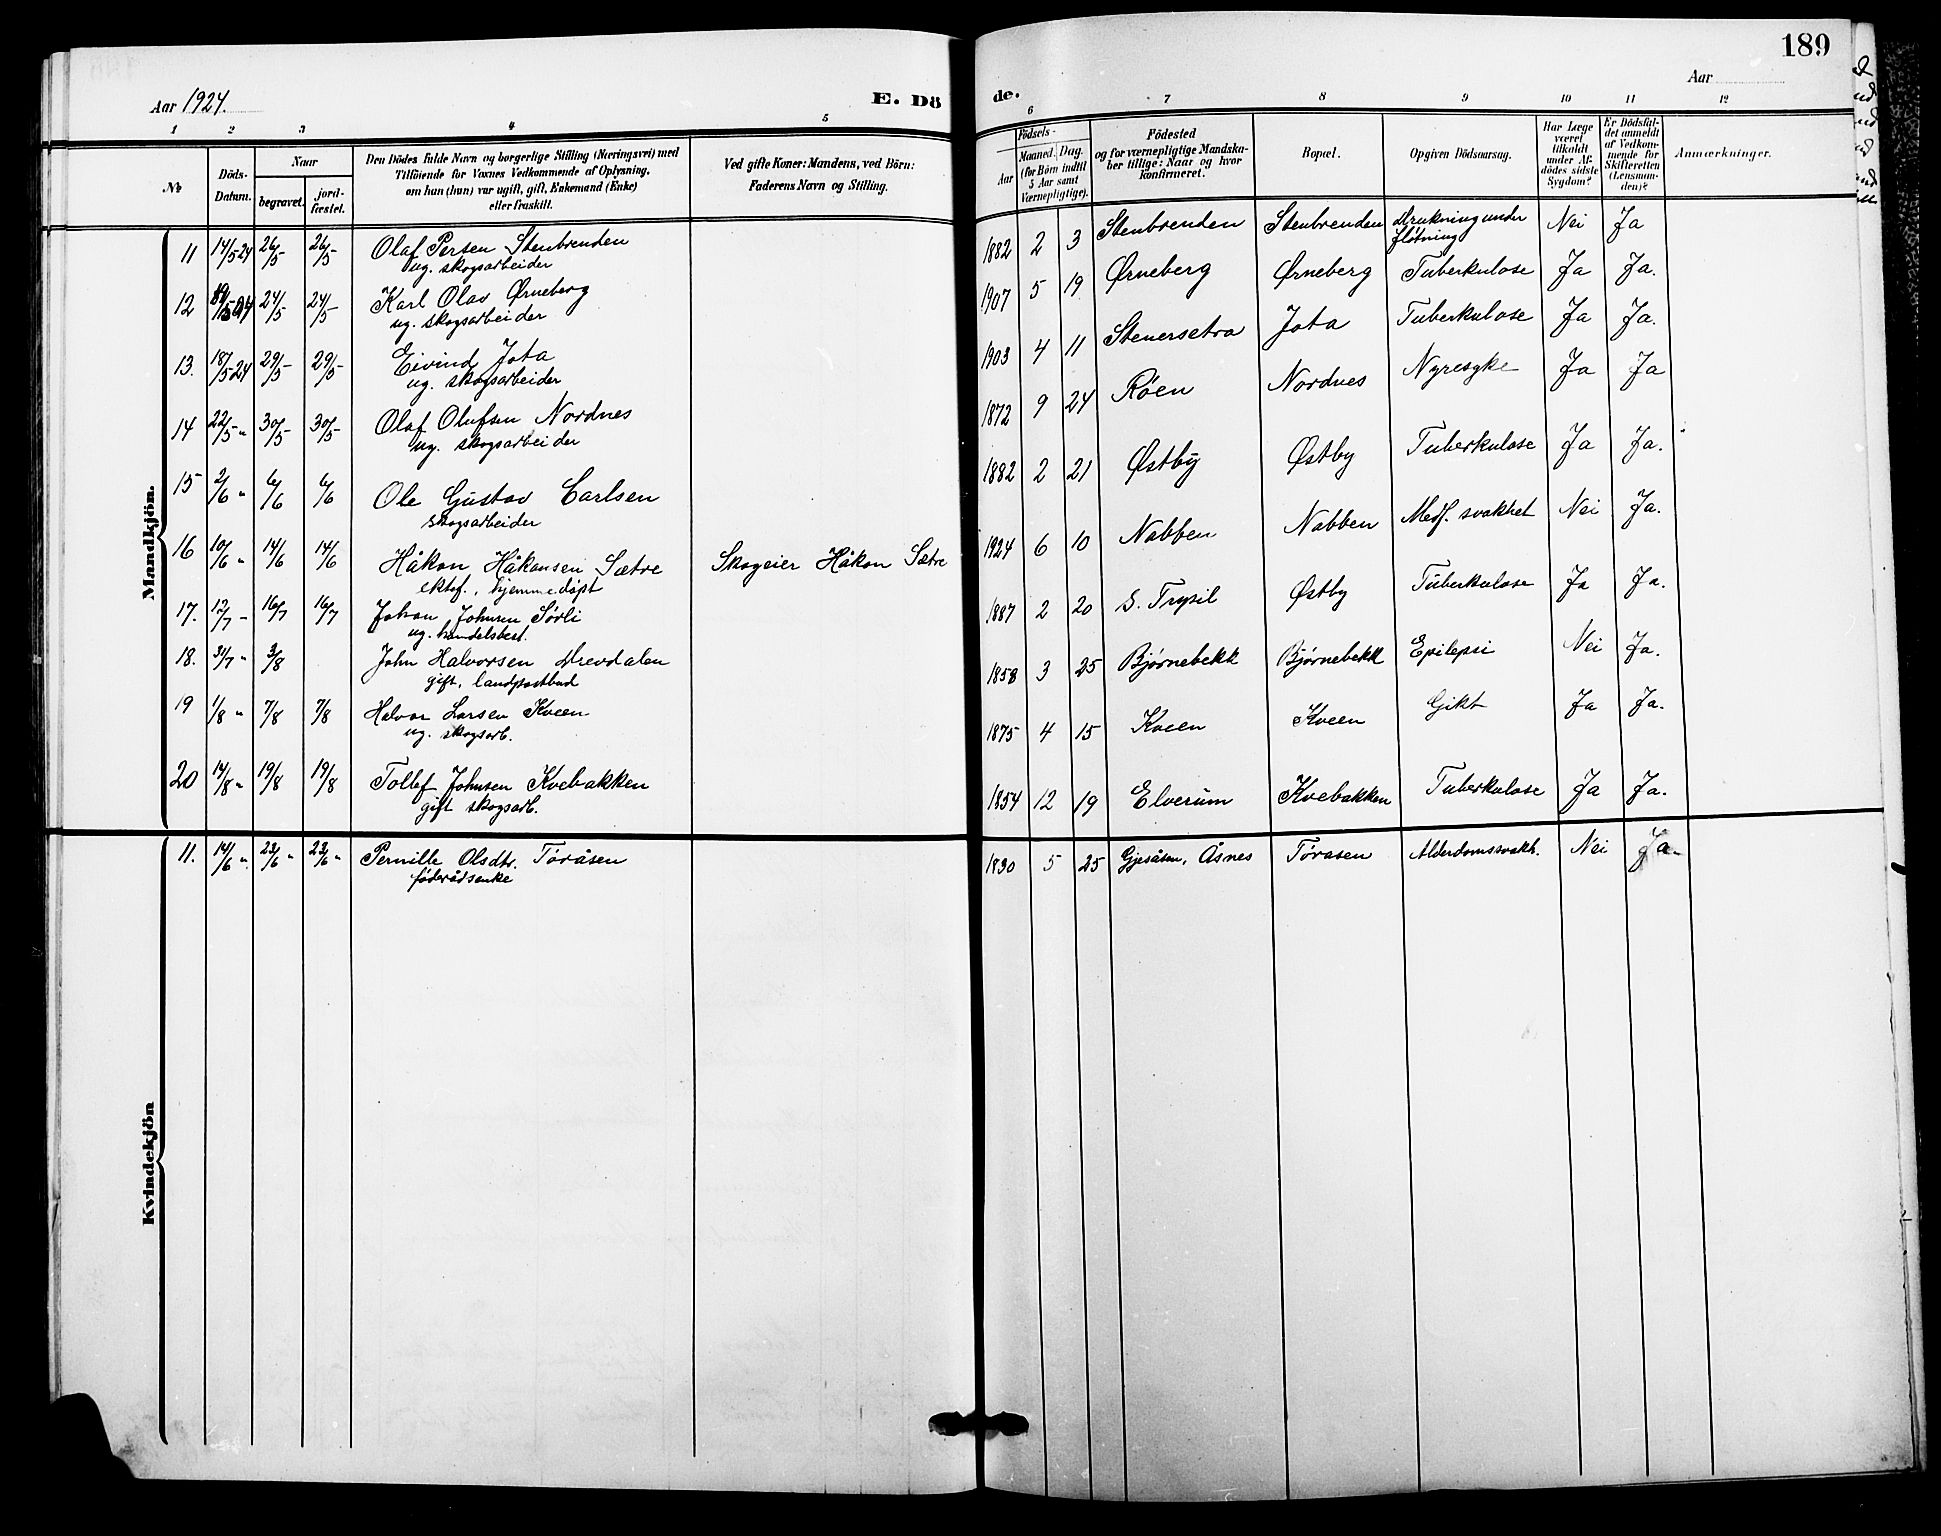 189
Aar 1924. E. Dö de. Aar
1 2 3 4 5 6 7 8 9 10 11 12
№
Döds-Datum.
Naar
begravet.
jord-fæstet.
Den Dödes fulde Navn og borgerlige Stilling (Næringsvei) med
Tilföiende for Voxnes Vedkommende af Oplysning,
om han (hun) var ugift, gift, Enkemand (Enke)
eller fraskilt.
Ved gifte Koner: Mandens, ved Börn:
Faderens Navn og Stilling.
Födsels-
Aar
Maaned. Dag.
(for Börn indtil
5 Aar samt
Værnepligtige).
Födested
og for værnepligtige Mandska-
ber tillige: Naar og hvor
Konfirmeret.
Bopæl.
Opgiven Dödsaarsag.
Har Læge
været
tilkaldt
under Af-
dödes sidste
Sygdom?
Er Dödsfal-
det anmeldt
af Vedkom-
mende for
Skifteretten
(Lensman-
den)?
Anmærkninger.
Mandkjön.
11 14/5-24 26/5 26/5 Olaf Persen Stenbrenden 1882 2 3 Stenbrenden Stenbrenden Drukning under Nei Ja
ug. skogsarbeider fløtning
12 24/5 24/5 Karl Olav Ørneberg 1907 5 19 Ørneberg Ørneberg Tuberkulose Ja Ja.
ug. skogsarbeider
13. 18/5-24 29/5 29/5 Eivind Jota 1903 4 11 Stenersetra Jota Tuberkulose Ja Ja.
ug. skogsarbeider
14 22/5 " 30/5 30/5 Olaf Olufsen Nordnes 1872 9 24 Røen Nordnes Nyresyke Ja Ja
ug. skogsarbeider
15 2/6 " 6/6 6/6 Ole Gustav Carlsen 1882 2 21 Østby Østby Tuberkulose Ja Ja.
skogsarbeider
16 10/6 " 14/6 14/6 Håkon Håkonsen Sætre Skogeier Håkon Sætre 1924 6 10 Nabben Nabben Medf. svakhet Nei Ja.
ektef., hjemmedøpt
17. 12/7 - 16/7 16/7 Johan Johnsen Sørli 1887 2 20 S. Trysil Østby Tuberkulose Ja Ja.
ug. handelsbest.
18. 31/7 " 3/8 John Halvorsen Drevdalen 1858 3 25 Bjørnebekk Bjørnebekk Epilepsi Nei Ja.
gift, landpostbud
19 1/8 " 7/8 7/8 Halvor Larsen Kveen 1875 4 15 Kveen Kveen Gikt Ja Ja.
ug. skogsarb.
20 14/8 " 19/8 19/8 Tollef Johnsen Kvebakken 1854 12 19 Elverum Kvebakken Tuberkulose Ja Ja.
gift skogsarb.
Kvindekjön
11. 14/6 " 23/6 " 23/6 " Pernille Olsdtr. Töråsen 1830 5 25 Gjesåsen, Åsnes Töråsen Alderdomssvakh. Nei Ja.
føderådsenke